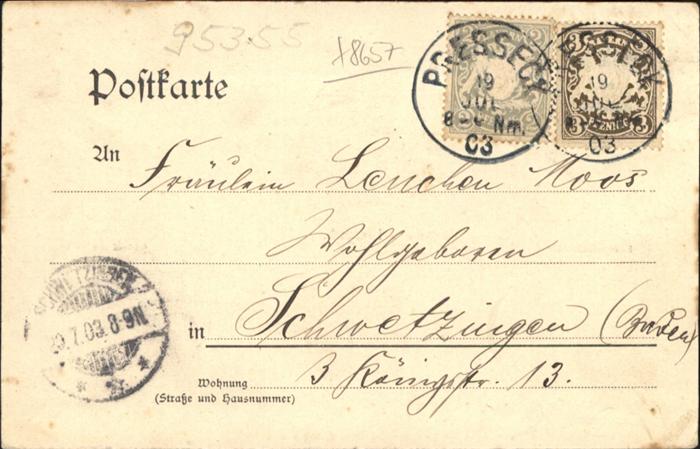 95355
18657
Postkarte
PRESSECK
19
JUL
8-9 Nm.
03
PRESSECK
19
JUL
03
2
3
3
An
Fräulein Lenchen Moos
Wohlgeboren
in Schwetzingen (Baden)
Wohnung 3 Königstr. 13.
(Straße und Hausnummer)
SCHWETZINGEN
20.7.03.8-9N